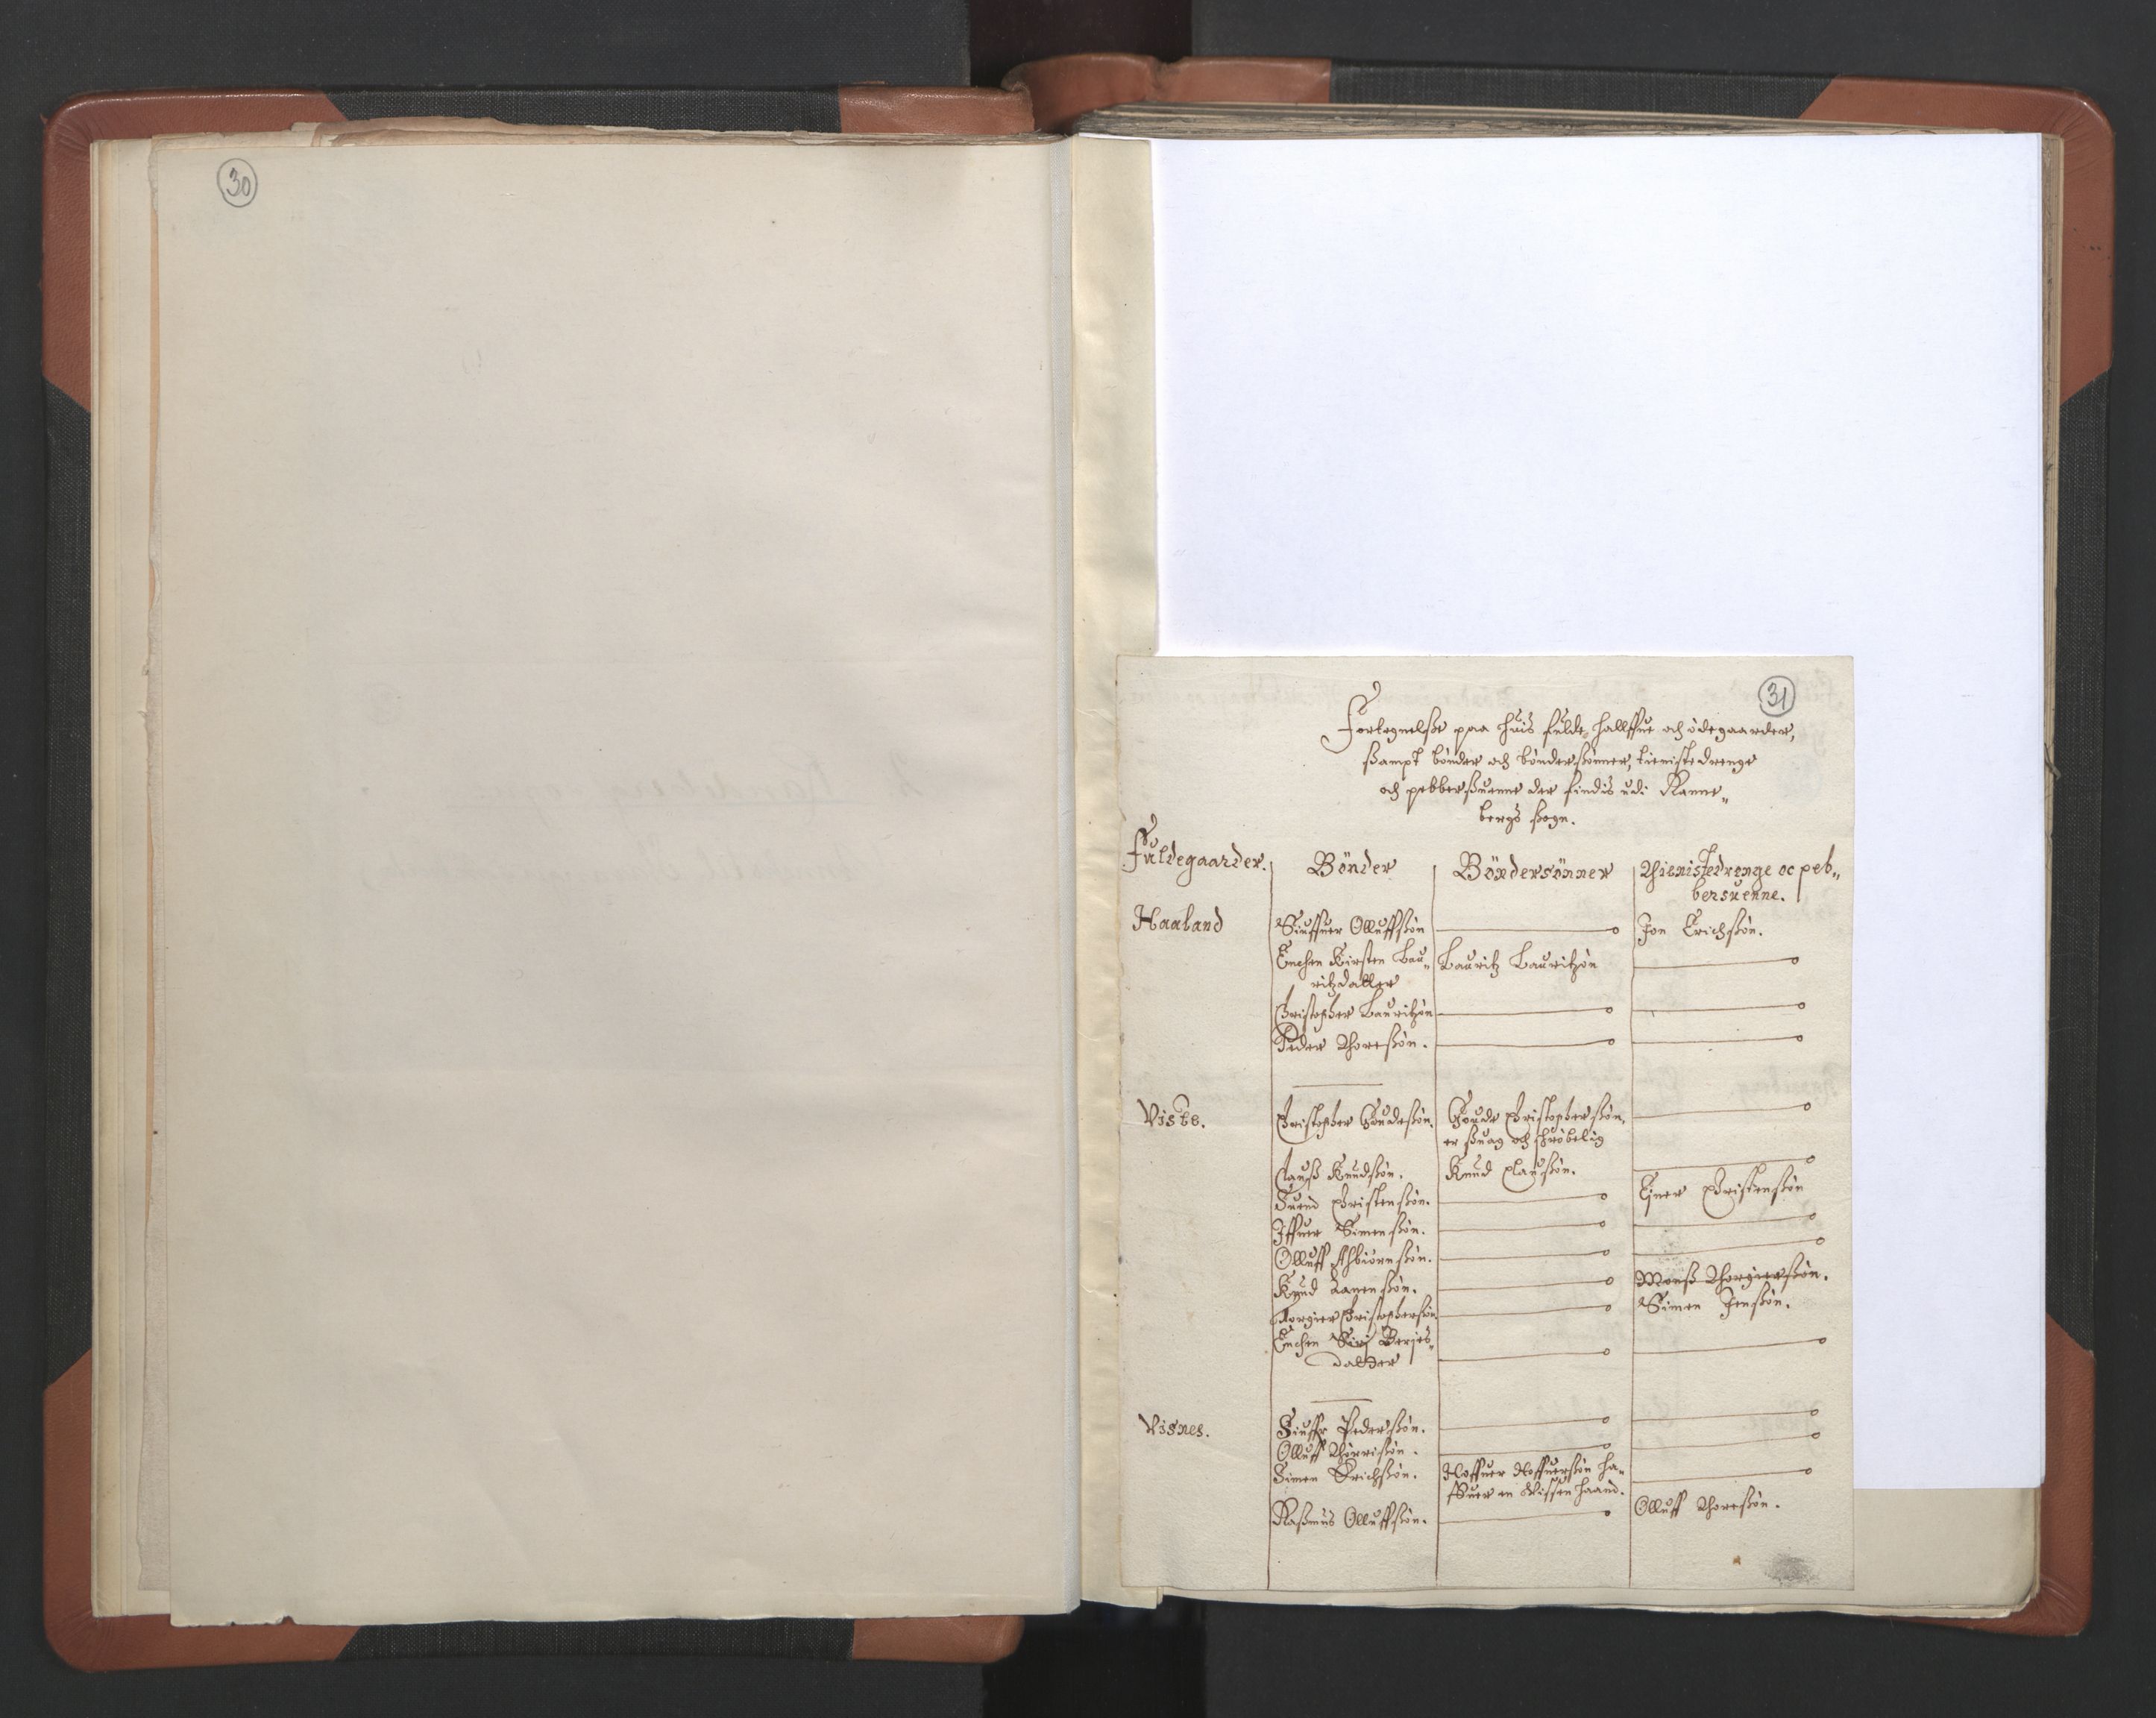 30
31
Fortegnelsse paa huis fulde, hallffue och ødegaarder,
ssampt bønder och bønderssønner, tienistedrenge
och pebberssuenne der findis udi Ranne„
bergs ssogn.
Fuldegaarder. Bønder Bøndersønner Thienistedrenge oc peb„
bersuenne.
Haaland Siuffuer Olluffssøn Jon Erichssøn.
Enchen Kirsten Lau„ Lauritz Lauritzøn
ritzdatter
Christopher Lauritzøn
Peder Thoressøn.
Viste. Christopher Goudessøn. Goude Christopherssøn,
er ssuag och schrøbelig
Clauss Knudssøn. Knud Claussøn.
Suend Christenssøn. Ejner Christenssøn
Iffuer Simenssøn.
Olluff Asbiørnssøn.
Knud Aanenssøn. Monss Thorgierssøn.
Torgier Christopherssøn Simen Jenssøn.
Enchen Siri Berjes„
datter
Visnes. Siuffr Pederssøn.
Olluff Thørrissøn.
Simen Erichssøn. Roffuer Roffuerssøn ha„
ffuer en vissen haand.
Rassmus Olluffssøn. Olluff Thoressøn.